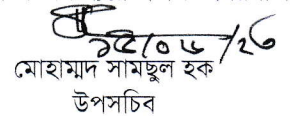 ১৫/০৬/২৩
মোহাম্মদ সামছুল হক
উপসচিব